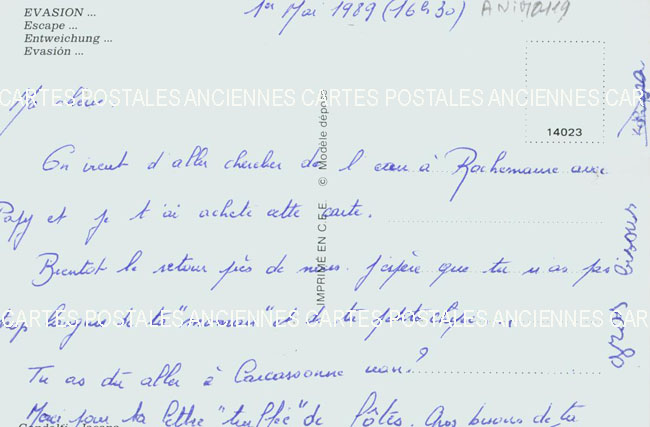 EVASION ...
Escape ...
Entweichung ...
Evasión ...
1er Mai 1989 (16h30)
ANIMO119
14023
© Modèle déposé
IMPRIMÉ EN C.E.E.
CARTES POSTALES ANCIENNES CARTES POSTALES ANCIENNES CARTES
On vient d'aller chercher de l'eau à Rochemaure avec
Papy et je t'ai acheté cette carte.
Bientôt le retour près de nous. J'espère que tu n'as pas
CARTES POSTALES ANCIENNES CARTES POSTALES ANCIENNES CARTES
de ta "maman" et de ta petite
Tu as dû aller à Carcassonne non?
Merci pour ta lettre "truffée" de fôtes. Gros bisous de ta
gros bisous